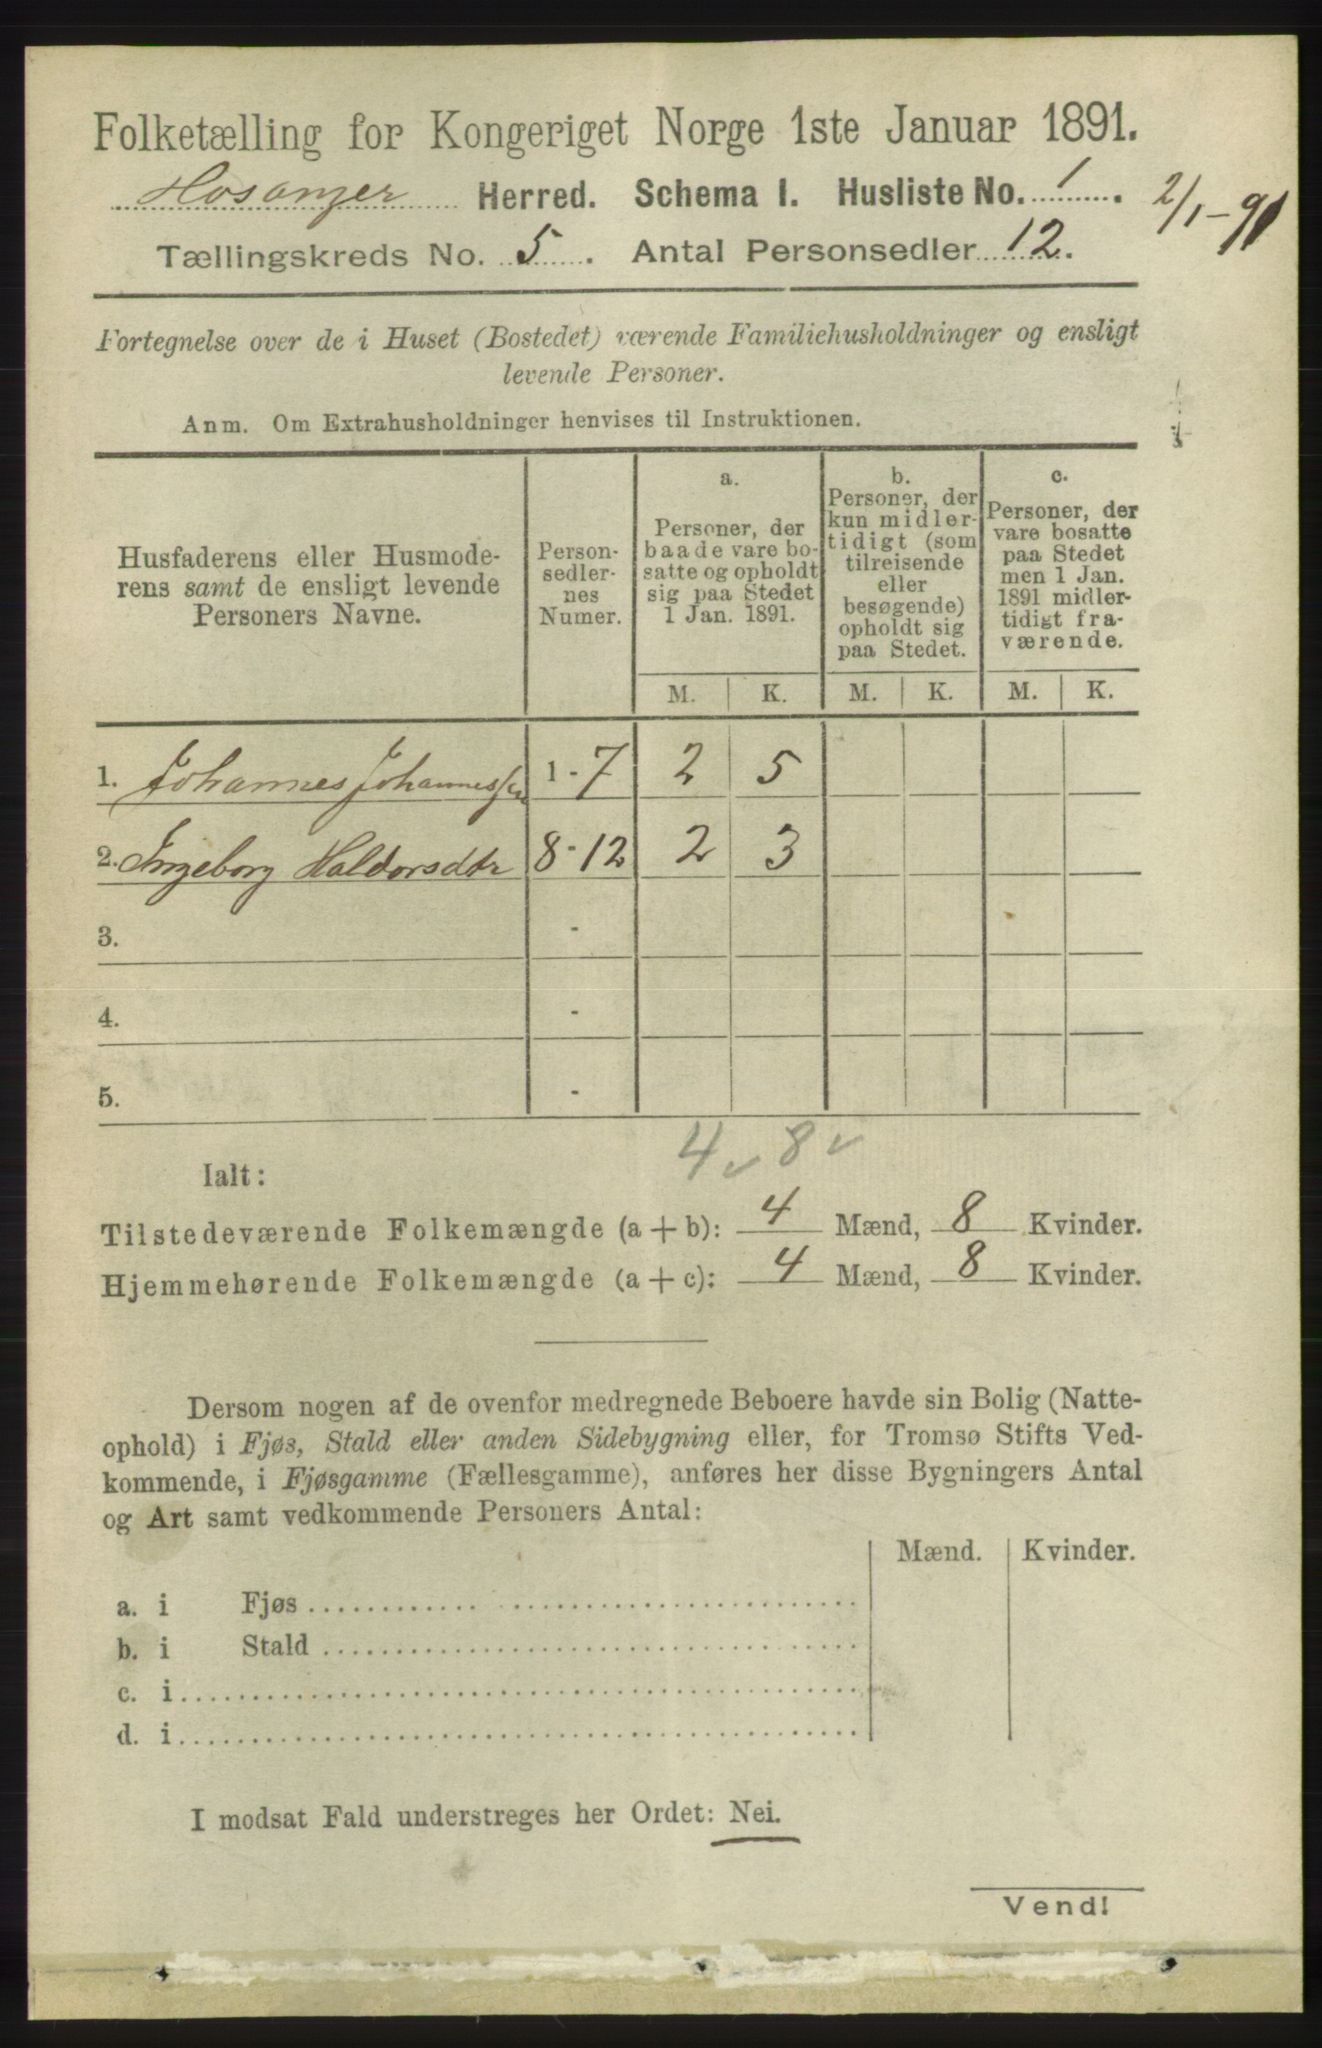 Folketælling for Kongeriget Norge 1ste Januar 1891.
Hosanger Herred. Schema I. Husliste No. 1.
2/1-91
Tællingskreds No. 5. Antal Personsedler 12.
Fortegnelse over de i Huset (Bostedet) værende Familiehusholdninger og ensligt
levende Personer.
Anm. Om Extrahusholdninger henvises til Instruktionen.
Husfaderens eller Husmode-
rens samt de ensligt levende
Personers Navne.
Person-
sedler-
nes
Numer.
a.
Personer, der
baade vare bo-
satte og opholdt
sig paa Stedet
1 Jan. 1891.
b.
Personer, der
kun midler-
tidigt (som
tilreisende
eller
besøgende)
opholdt sig
paa Stedet.
c.
Personer, der
vare bosatte
paa Stedet
men 1 Jan.
1891 midler-
tidigt fra-
værende.
M. K. M. K. M. K.
1. Johannes Johannessen 1-7 2 5
2. Ingeborg Haldorsdtr 8-12 2 3
3. -
4. -
5. -
4 ✓ 8 ✓
Ialt:
Tilstedeværende Folkemængde (a + b): 4 Mænd, 8 Kvinder.
Hjemmehørende Folkemængde (a + c): 4 Mænd, 8 Kvinder.
Dersom nogen af de ovenfor medregnede Beboere havde sin Bolig (Natte-
ophold) i Fjøs, Stald eller anden Sidebygning eller, for Tromsø Stifts Ved-
kommende, i Fjøsgamme (Fællesgamme), anføres her disse Bygningers Antal
og Art samt vedkommende Personers Antal:
Mænd. Kvinder.
a. i Fjøs
b. i Stald
c. i
d. i
I modsat Fald understreges her Ordet: Nei.
Vend!